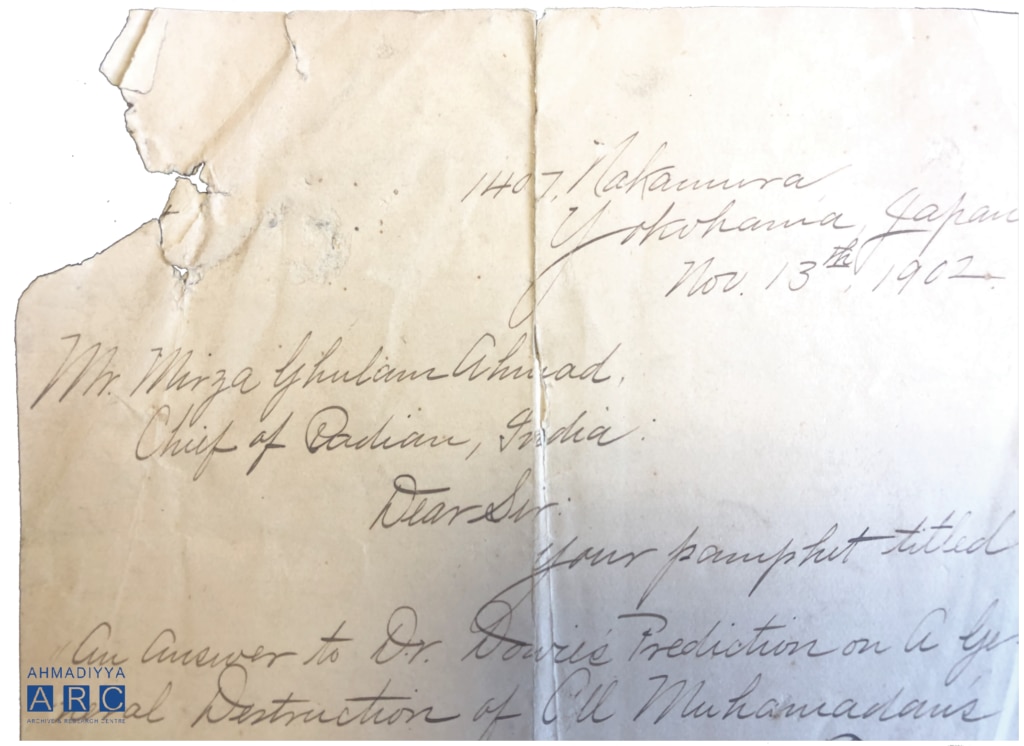 1407, Nakamura
Yokohama, Japan
Nov. 13th, 1902.
Mr. Mirza Ghulam Ahmad.
Chief of Qadian, India:
Dear Sir:
Your pamphet titled
"An Answer to Dr. Dowie's Prediction on A Ge-
neral Destruction of All Muhamadans
AHMADIYYA
ARC
ARCHIVE & RESEARCH CENTRE